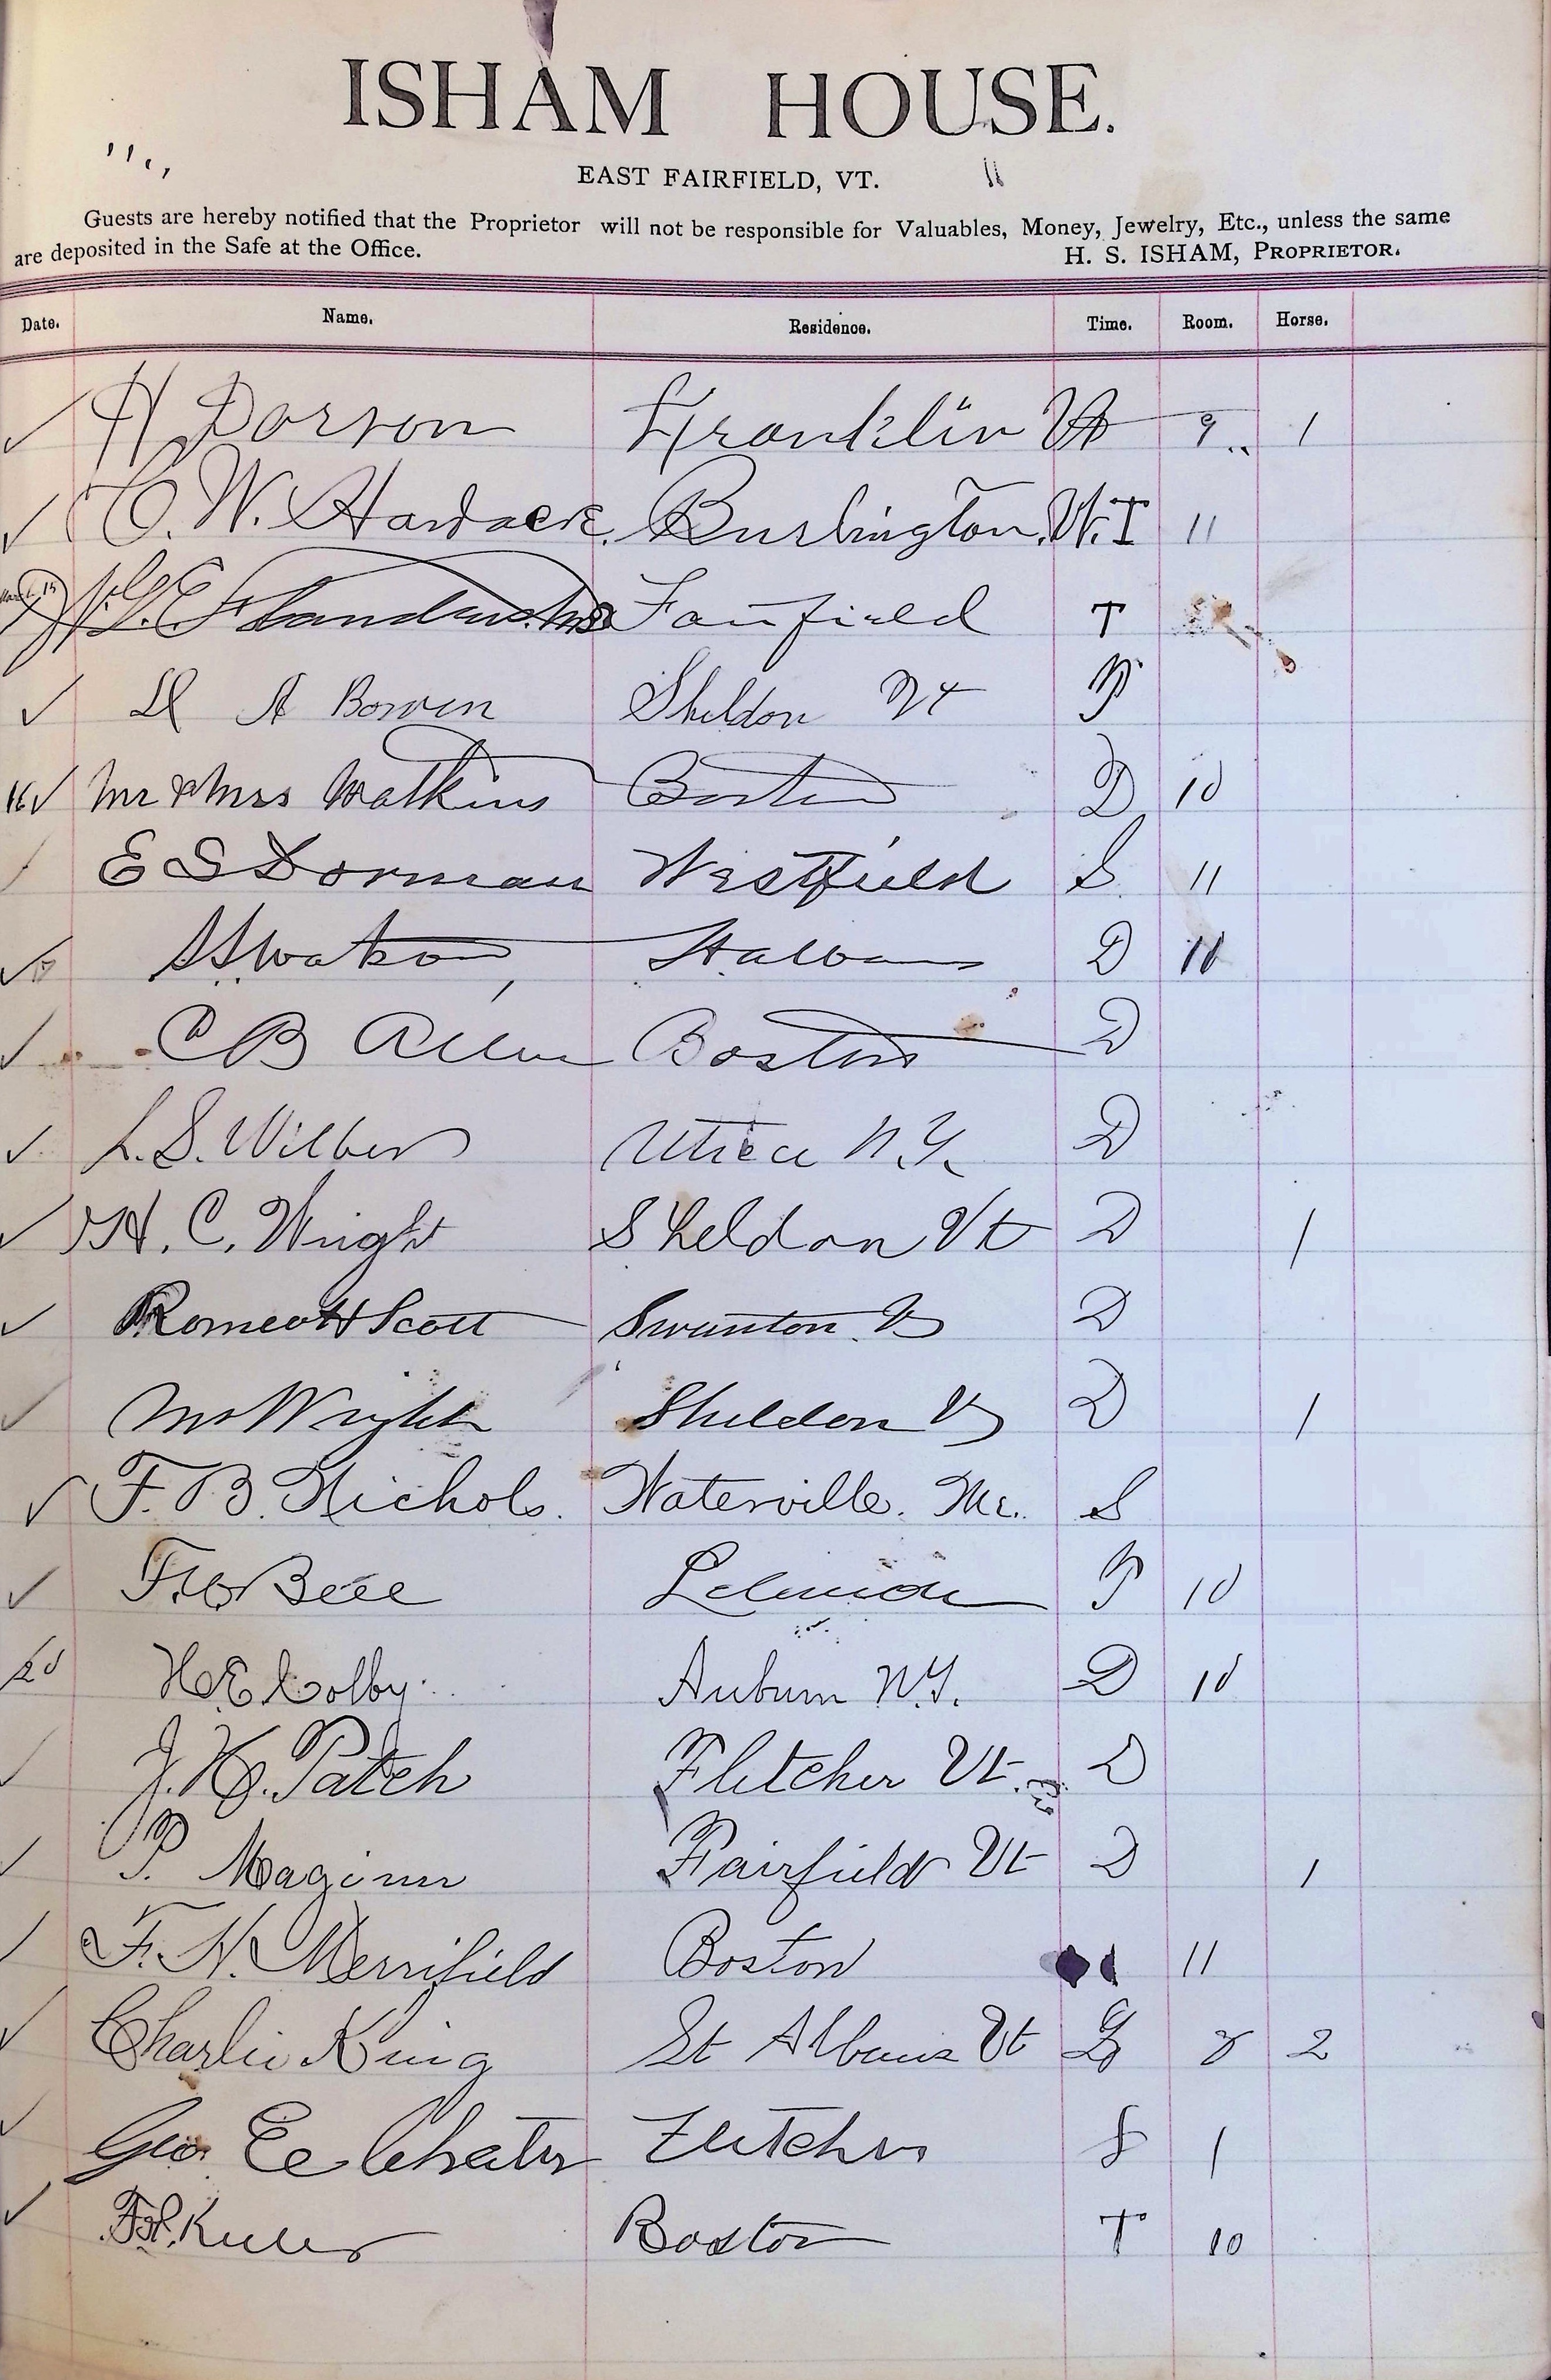 ISHAM HOUSE.
EAST FAIRFIELD, VT.
Guests are hereby notified that the Proprietor will not be responsible for Valuables, Money, Jewelry, Etc., unless the same
are deposited in the Safe at the Office. H. S. ISHAM, PROPRIETOR.
Date. Name. Residence. Time. Room. Horse.
H Dorson Franklin Vt 9 1
W. Burlington, Vt. T 11
Fairfield T
A Bowen Sheldon Vt
16 Mr & Mrs Watkins Boston D 10
E S Dorman Westfield S 11
S S Watson, St Albans D 11
C B Allen Boston D
L. S. Wilber Utica N.Y. D
H. C. Wright Sheldon Vt D 1
Romeo H Scott Swanton Vt D
Mr Wright Sheldon Vt D 1
F. B. Nichols. Waterville. Me. S
Bell 10
20 H.E. Colby Auburn N.Y. D 10
J. H. Patch Fletcher Vt. D
P. Maginn Fairfield Vt D 1
F. N. Merrifield Boston 11
Charlie King St Albans Vt 8 2
Geo. Ee Chater Fletcher S 1
Boston T 10